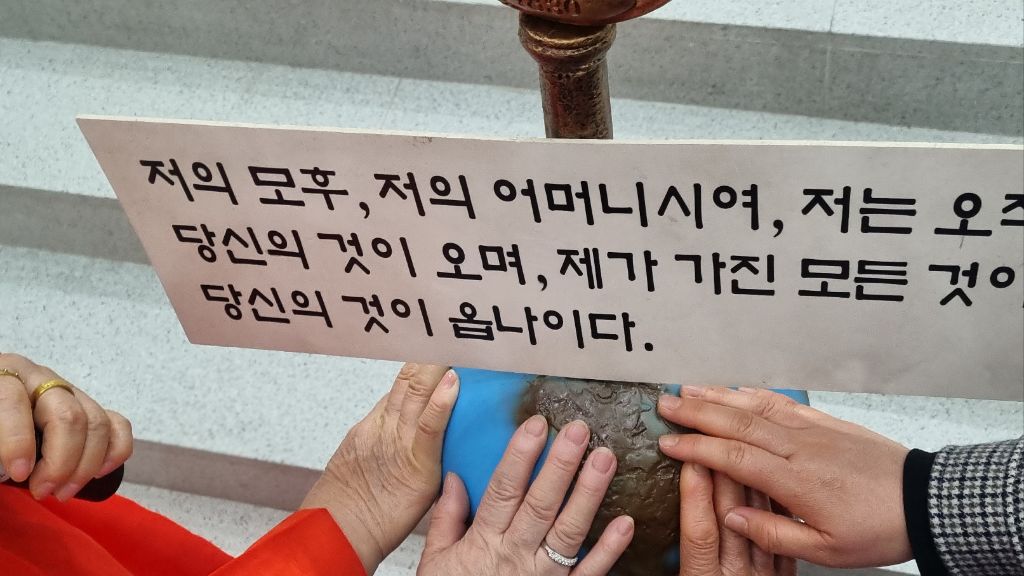 저의 모후, 저의 어머니시여, 저는
당신의 것이 오며, 제가 가진 모든
당신의 것이 옵나이다.